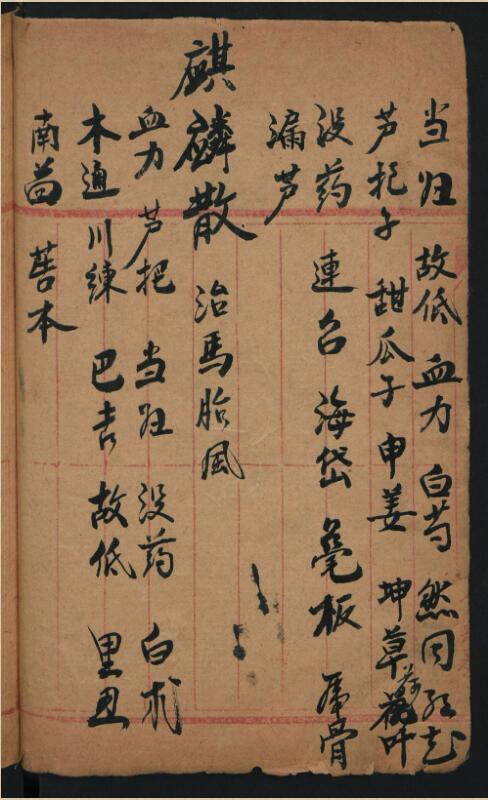 当归 故低 血力 白芍 然同 红花
芦把子 甜瓜子 申姜 坤草 荷叶
没药 連召 海岱 毫板 虎骨
漏芦
麒麟散 治馬胎風
血力 芦把 当归 没药 白朮
木通 川練 巴吉 故低 里丑
南茴 藁本